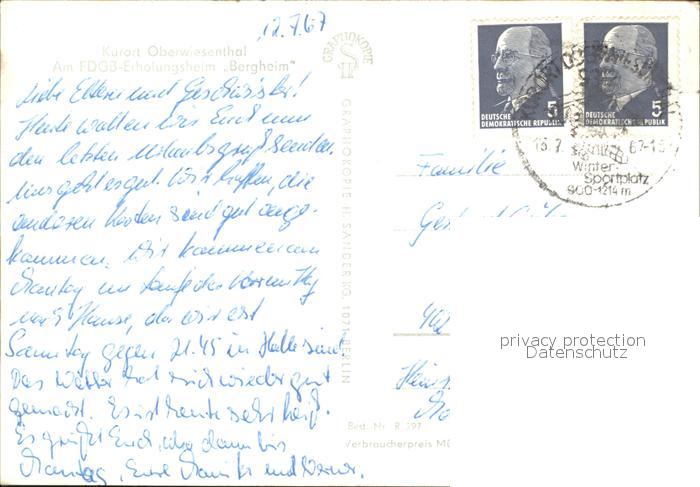 12.7.67
Kurort Oberwiesenthal
Am FDGB-Erholungsheim „Bergheim"
Liebe Eltern und Geschwister!
Heute wollen wir Euch nun
den letzten Urlaubsgruß senden.
Uns geht es gut. Wir hoffen, die
anderen Karten sind gut ange-
kommen. Wir kommen am
Sonntag im Laufe des Vormittag
nach Hause, da wir erst
Samstag gegen 21.45 in Halle sind.
Das Wetter hat sich wieder gut
gemacht. Es ist heute sehr heiß.
Es grüßt Euch, also dann bis
Sonntag, Eure und Werner.
GRAPHOKOPIE
GRAPHOKOPIE H. SANDER KG, 1071 BERLIN
DEUTSCHE
DEMOKRATISCHE REPUBLIK
5
DEUTSCHE
DEMOKRATISCHE REPUBLIK
5
13.7. 67-15
Winter-
Sportplatz
900-1214 m
Familie
402
privacy protection
Datenschutz
Best. Nr. R 397
Verbraucherpreis M